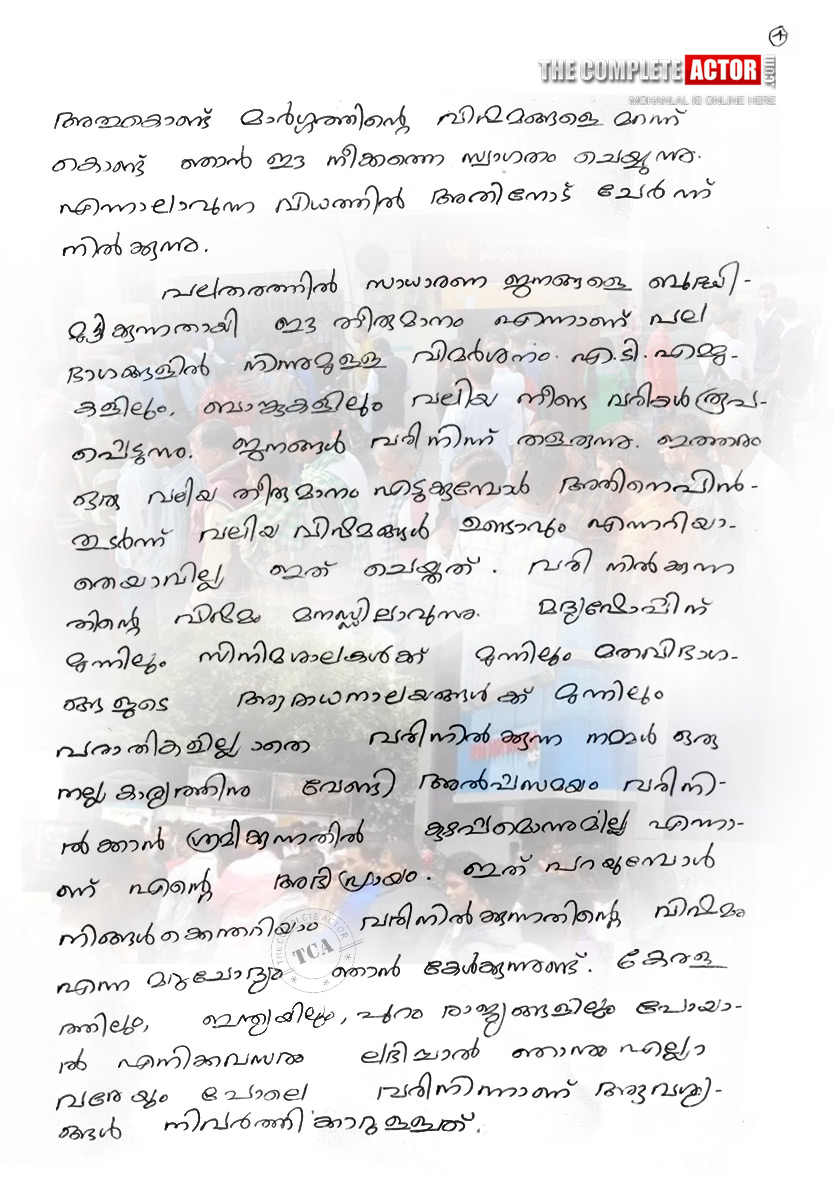 THE COMPLETE ACTOR .COM
MOHANLAL IS ONLINE HERE
അതുകൊണ്ട് മാർഗ്ഗത്തിന്റെ വിഷമങ്ങളെ മറന്ന്
കൊണ്ട് ഞാൻ ഈ നീക്കത്തെ സ്വാഗതം ചെയ്യുന്നു.
എന്നാലാവുന്ന വിധത്തിൽ അതിനോട് ചേർന്ന്
നിൽക്കുന്നു.
പലതരത്തിൽ സാധാരണ ജനങ്ങളെ ബുദ്ധി-
മുട്ടിക്കുന്നതായി ഈ തീരുമാനം എന്നാണ് പല
ഭാഗങ്ങളിൽ നിന്നുമുള്ള വിമർശനം. എ.ടി.എമ്മു-
കളിലും, ബാങ്കുകളിലും വലിയ നീണ്ട വരികൾ രൂപ-
പ്പെടുന്നു. ജനങ്ങൾ വരിനിന്ന് തളരുന്നു. ഇത്തരം
ഒരു വലിയ തീരുമാനം എടുക്കുമ്പോൾ അതിനെപിൻ-
തുടർന്ന് വലിയ വിഷമങ്ങൾ ഉണ്ടാവും എന്നറിയാ-
തെയാവില്ല ഇത് ചെയ്തത്. വരി നിൽക്കുന്ന
തിന്റെ വിഷമം മനസ്സിലാവുന്നു. മദ്യഷോപ്പിന്
മുന്നിലും സിനിമശാലകൾക്ക് മുന്നിലും മതവിഭാഗ-
ങ്ങളുടെ ആരാധനാലയങ്ങൾക്ക് മുന്നിലും
പരാതികളില്ലാതെ വരിനിൽക്കുന്ന നമ്മൾ ഒരു
നല്ല കാര്യത്തിനു വേണ്ടി അൽപസമയം വരിനി-
ൽക്കാൻ ശ്രമിക്കുന്നതിൽ കുഴപ്പമൊന്നുമില്ല എന്നാ-
ണ് എന്റെ അഭിപ്രായം. ഇത് പറയുമ്പോൾ
നിങ്ങൾക്കെന്തറിയാം വരിനിൽക്കുന്നതിന്റെ വിഷമം
എന്ന മറുചോദ്യം ഞാൻ കേൾക്കുന്നുണ്ട്. കേരള
ത്തിലും, ഇന്ത്യയിലും, പുറം രാജ്യങ്ങളിലും പോയാ-
ൽ എനിക്കവസരം ലഭിച്ചാൽ ഞാനും എല്ലാ
വരേയും പോലെ വരിനിന്നാണ് ആവശ്യ-
ങ്ങൾ നിവർത്തിക്കാറുള്ളത്.
THE COMPLETE ACTOR
TCA